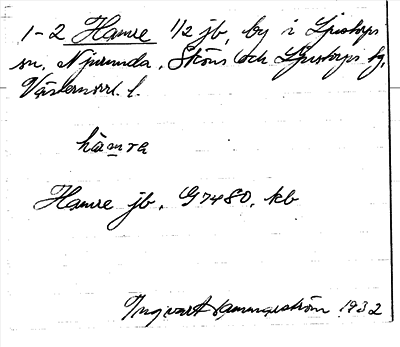 1-2 Hamre 1/2 jb, by i Ljustorps
sn, Njurunda, Sköns och Ljustorps tg,
Västernorrl. l.
hamra
Hamre jb, G7480, kb
Ingvar 1932